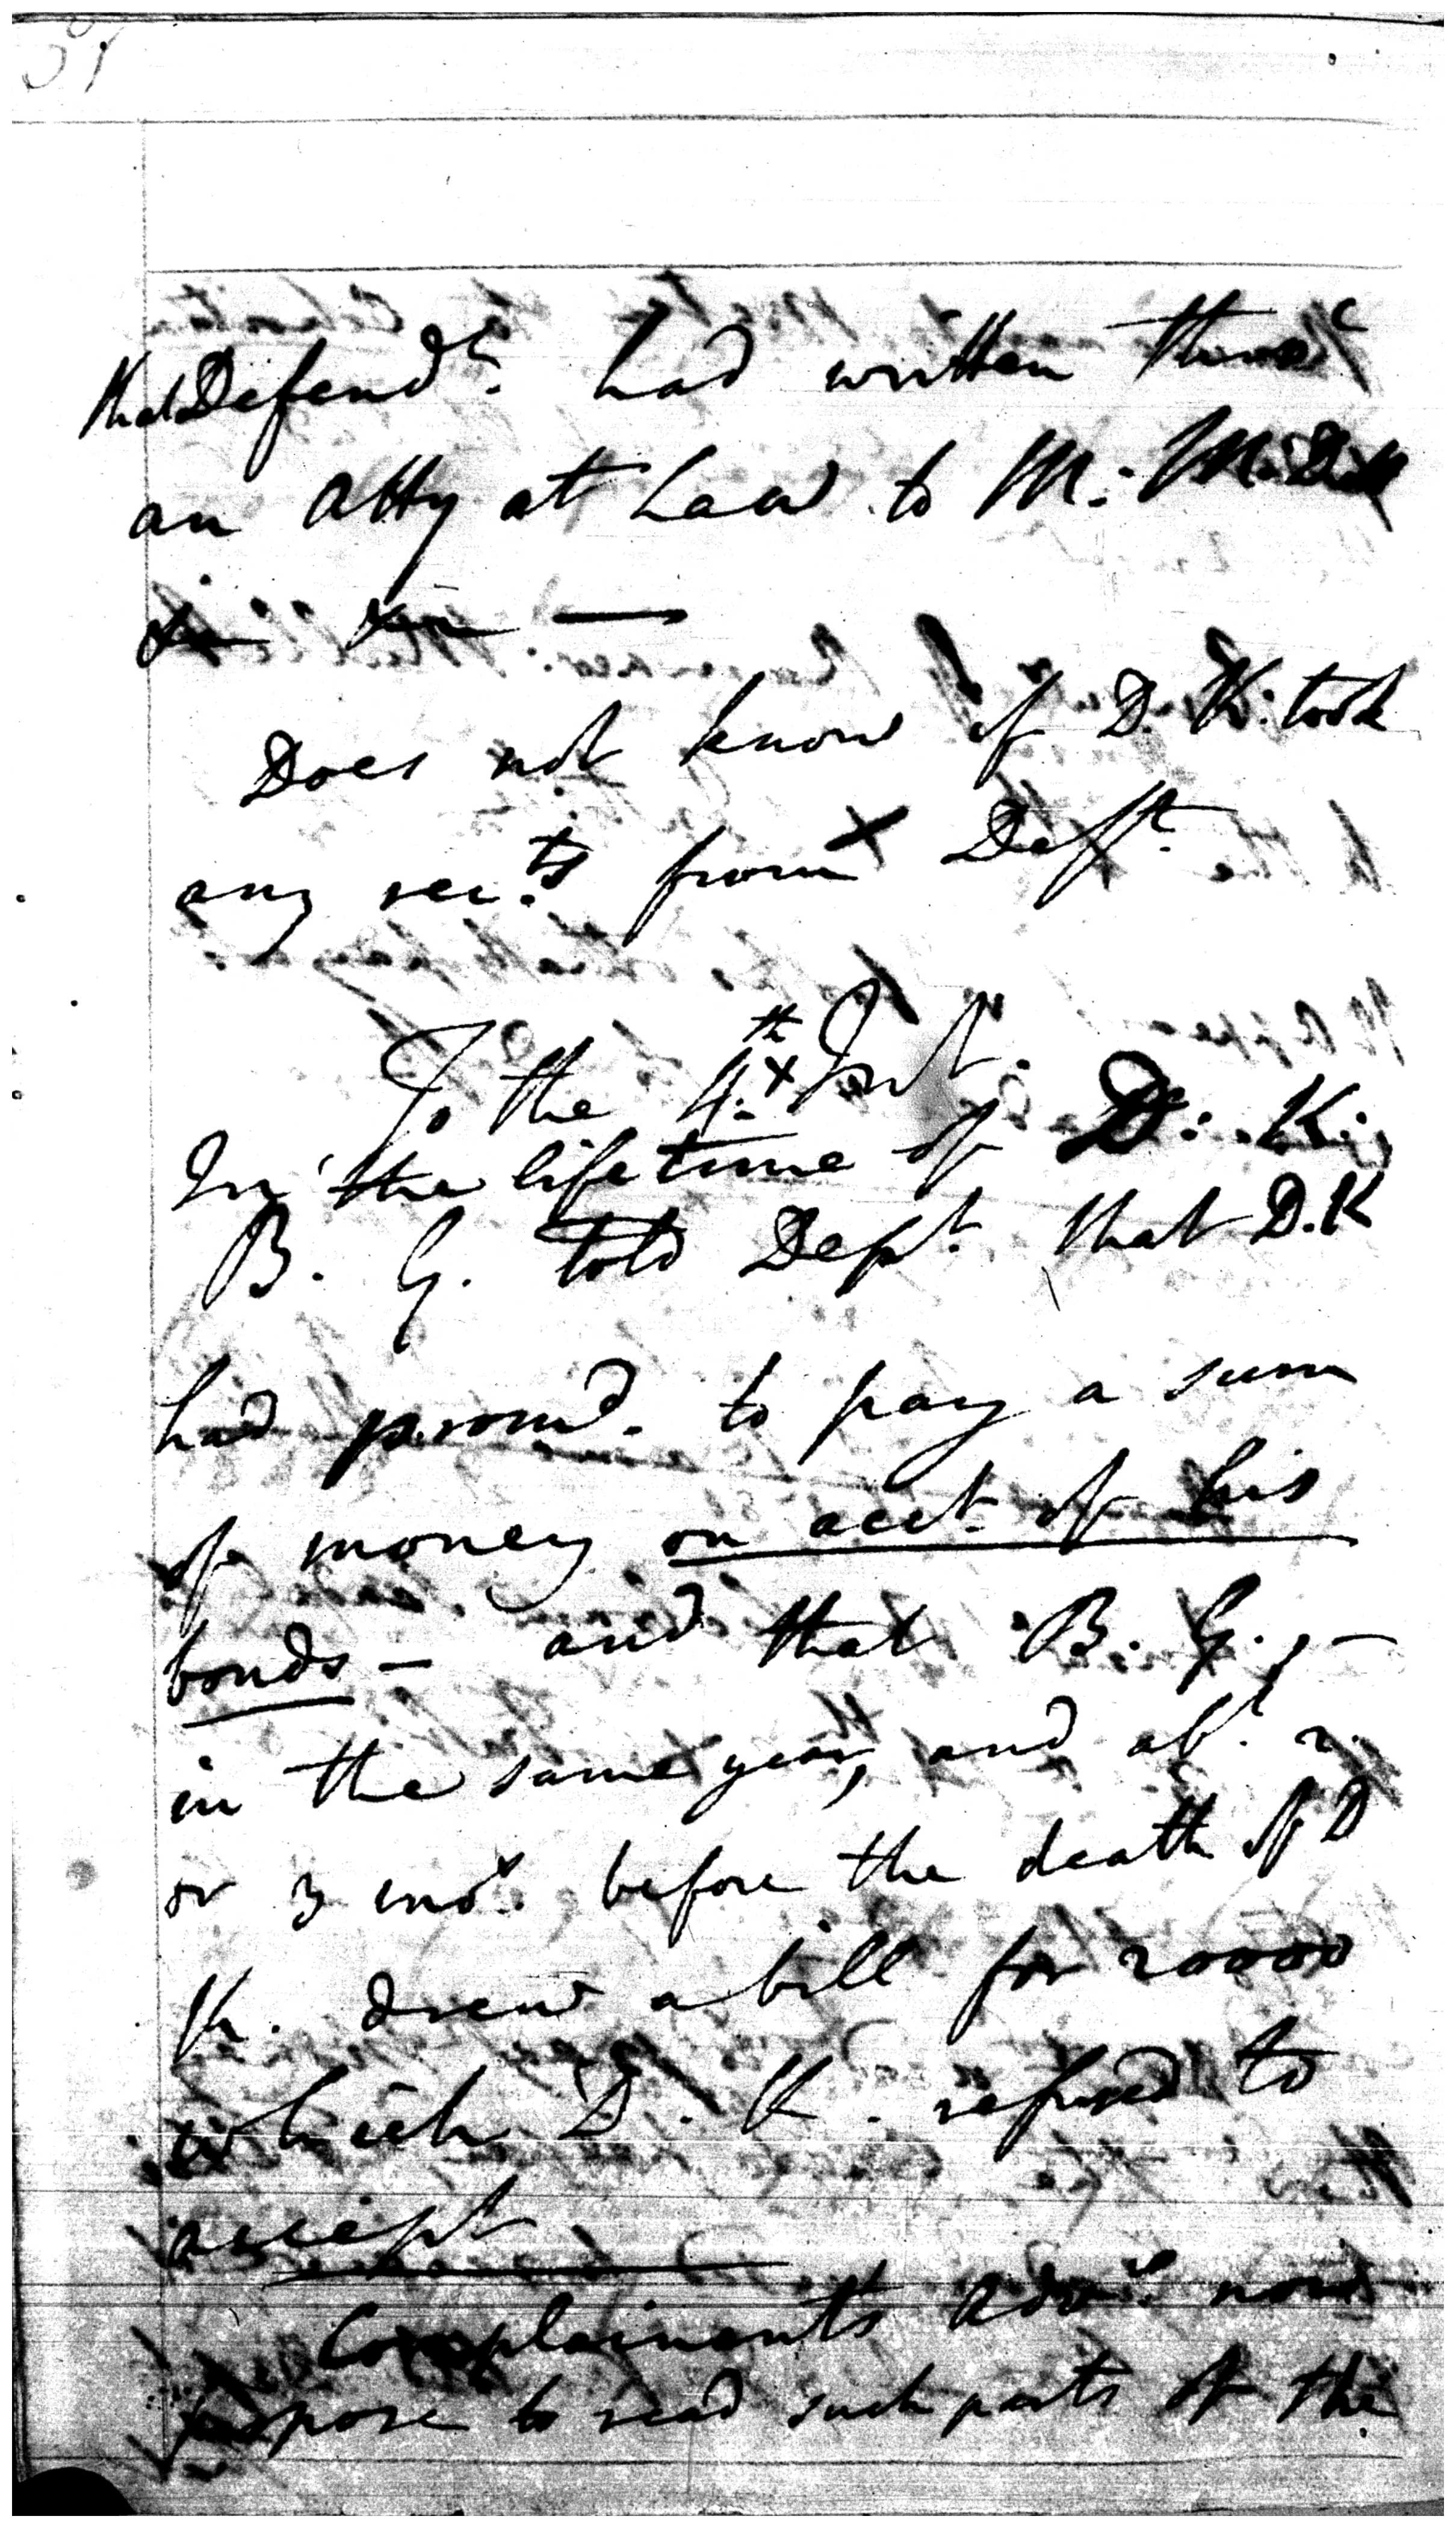 that Defend.t had written thro
an Atty at Law to M.r
Does not know if D. K. took
any rec.ts from x Deft.
To the 4.th x Int.
In the lifetime of D. K.
B. G. told Dept. that D. K
had prom.d to pay a sum
of money on acct. of his
bonds — and that B. G., —
in the same year, and ab.t 2.
or 3 mo.s before the death of D
K. drew a bill for 20000
which D. K. refused to
accept
Complainants adv.s now
propose to read such parts of the